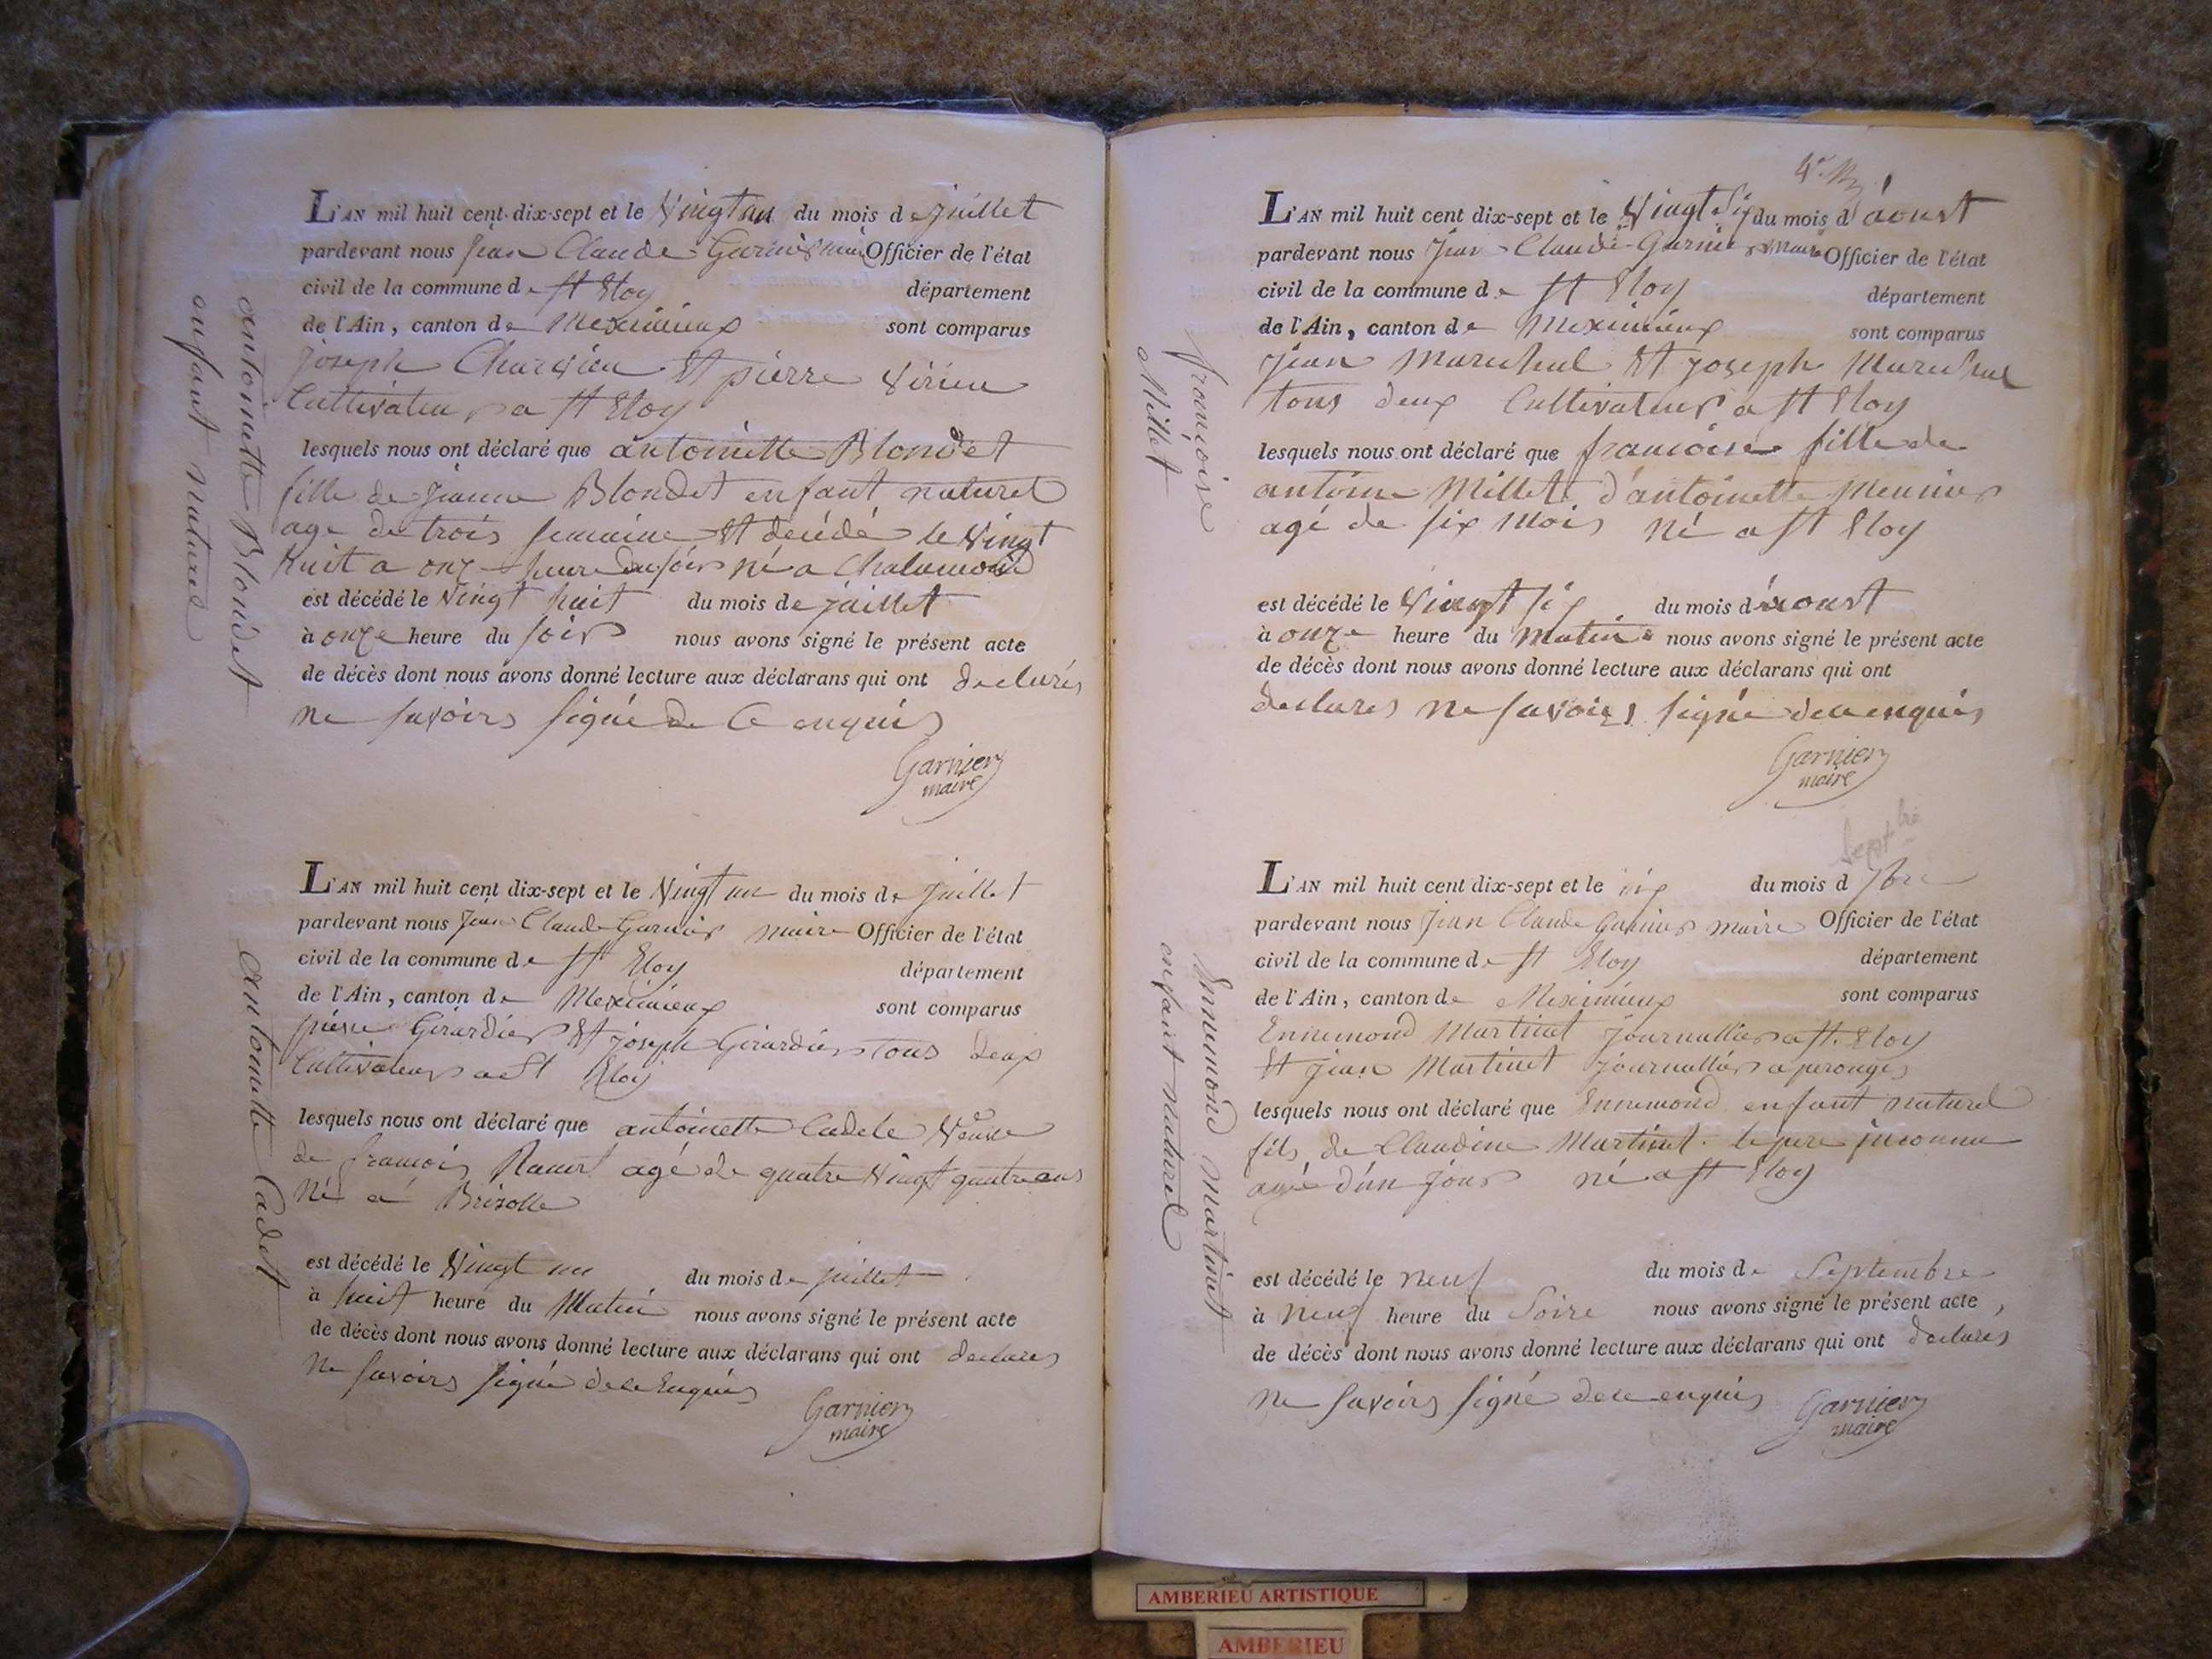 L'AN mil huit cent dix-sept et le Vingt un du mois de juillet
pardevant nous jean Claude Garnier maire Officier de l'état
civil de la commune de St Eloy département
de l'Ain, canton de Meximieux sont comparus
joseph Charvieu Et pierre Virieu
Cultivateur a St Eloy
lesquels nous ont déclaré que antoinette Blondet
fille de jeanne Blondet enfant naturel
age de trois semaine Et decédé le Vingt
huit a onze heure du soir né a Chalamond
est décédé le Vingt huit du mois de juillet
à onze heure du soir nous avons signé le présent acte
de décès dont nous avons donné lecture aux déclarans qui ont declarés
ne savoirs signé de Ce enquis
Garnier
maire
antoinette Blondet
enfant naturel
L'AN mil huit cent dix-sept et le Vingt un du mois de juillet
pardevant nous jean Claude Garnier maire Officier de l'état
civil de la commune de St Eloy département
de l'Ain, canton de Meximieux sont comparus
pierre Girardier Et joseph Girardier tous deux
Cultivateur a St Eloy
lesquels nous ont déclaré que antoinette Cadete Veuve
de francois agé de quatre Vingt quatre ans
né a Brisolle
est décédé le Vingt un du mois de juillet
à huit heure du Matin nous avons signé le présent acte
de décès dont nous avons donné lecture aux déclarans qui ont declares
ne savoirs signé de ce Enquis
Garnier
maire
antoinette Cadet
L'AN mil huit cent dix-sept et le Vingt Six du mois d'aoust
pardevant nous Jean Claude Garnier Maire Officier de l'état
civil de la commune de St Eloy département
de l'Ain, canton de Meximieux sont comparus
Jean Marechal Et joseph Marechal
tous deux Cultivateur a St Eloy
lesquels nous ont déclaré que francoise fille de
antoine Millet d'antoinette Meunier
agé de six Mois Né a St Eloy
est décédé le Vingt six du mois d'aoust
à onze heure du matin nous avons signé le présent acte
de décès dont nous avons donné lecture aux déclarans qui ont
declares ne savoirs signé de ce enquis
Garnier
maire
francoise
Millet
Septbre
L'AN mil huit cent dix-sept et le du mois d 7bre
pardevant nous Jean Claude Garnier maire Officier de l'état
civil de la commune de St Eloy département
de l'Ain, canton de Meximieux sont comparus
Ennemond Martinet journallier a St. Eloy
Et jean Martinet journallier a perouges
lesquels nous ont déclaré que Ennemond enfant naturel
fils de Claudine Martinet le pere inconnu
agé d'un jour né a St Eloy
est décédé le neuf du mois de Septembre
à neuf heure du Soire nous avons signé le présent acte,
de décès dont nous avons donné lecture aux déclarans qui ont declarés
ne savoirs signé de ce enquis
Garnier
maire
Ennemond Martinet
enfant naturel
AMBERIEU ARTISTIQUE
AMBERIEU